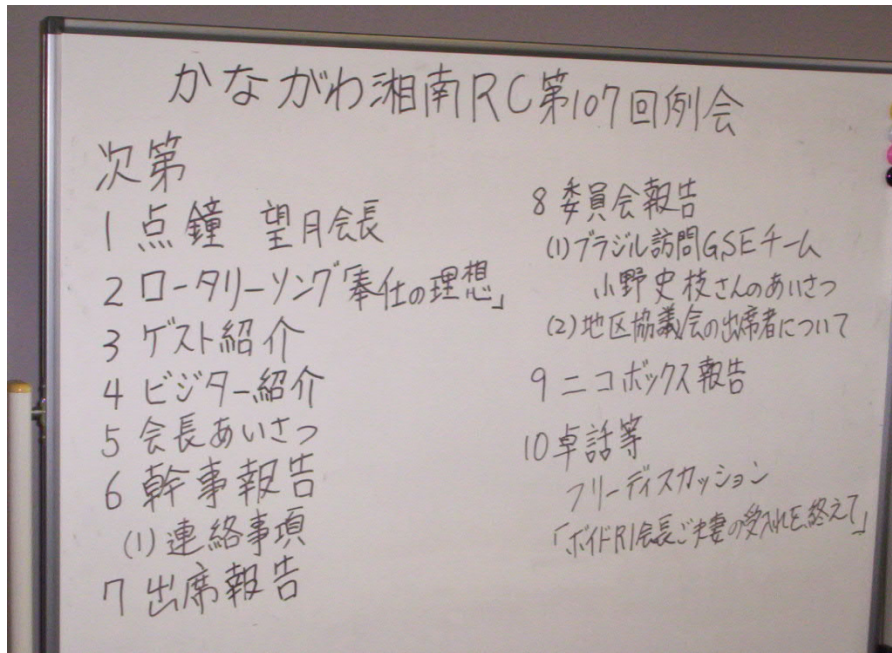 かながわ湘南RC第107回例会
次第
1 点鐘 望月会長
2 ロータリーソング「奉仕の理想」
3 ゲスト紹介
4 ビジター紹介
5 会長あいさつ
6 幹事報告
(1)連絡事項
7 出席報告
8 委員会報告
(1)ブラジル訪問GSEチーム
小野史枝さんのあいさつ
(2)地区協議会の出席者について
9 ニコボックス報告
10 卓話等
フリーディスカッション
「ボイドRI会長ご夫妻の受入れを終えて」